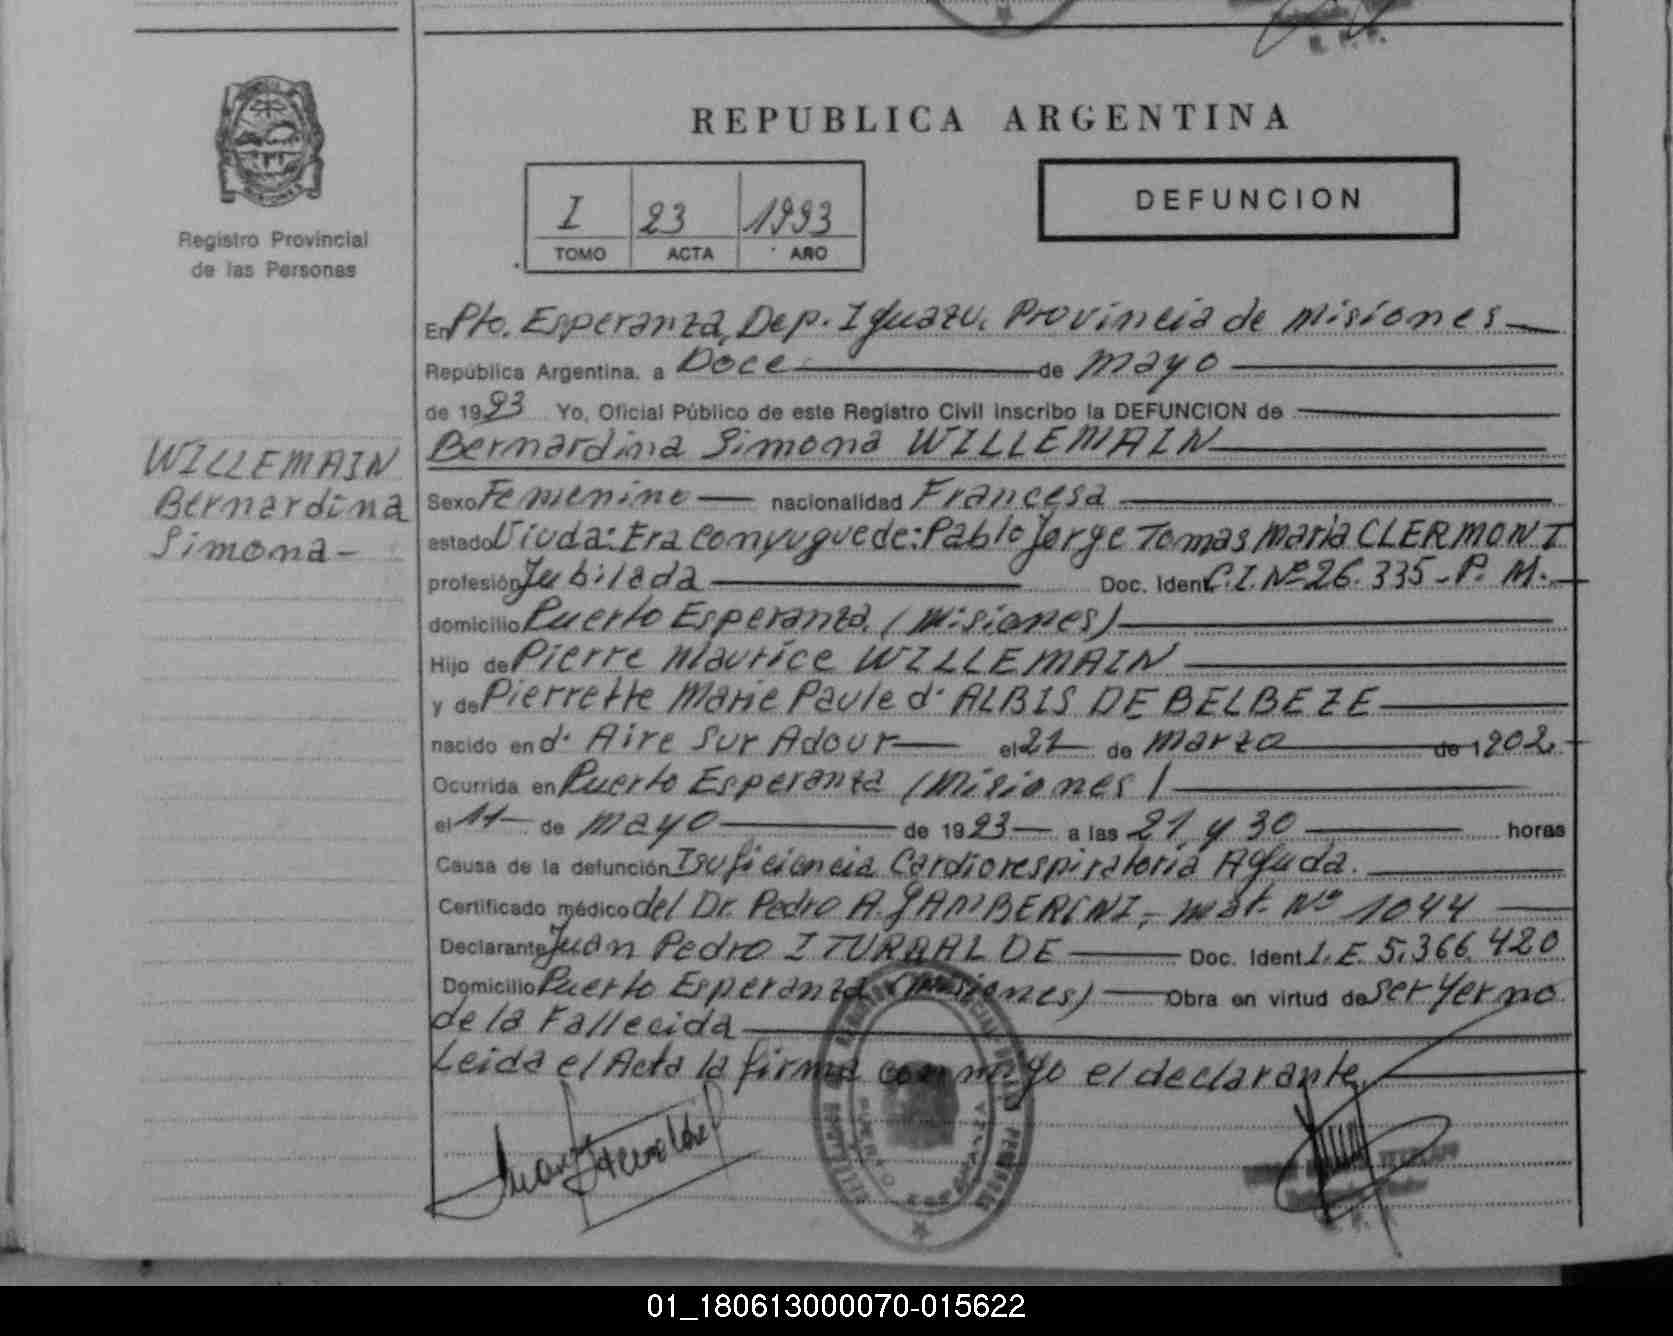 REPUBLICA ARGENTINA
Registro Provincial
de las Personas
I 23 1993
TOMO ACTA AÑO
DEFUNCION
En Pto. Esperanza, Dep. Iguazu. Provincia de Misiones
República Argentina, a Doce de Mayo
de 1993 Yo, Oficial Público de este Registro Civil inscribo la DEFUNCION de
Bernardina Simona WILLEMAIN
WILLEMAIN
Bernardina
Simona-
Sexo Femenino nacionalidad Francesa
estado Viuda: Era Conyugue de: Pablo Jorge Tomas Maria CLERMONT
profesión Jubilada Doc. Ident. C.I. Nº 26.335-P. M.
domicilio Puerto Esperanza, (Misiones)
Hijo de Pierre Maurice WILLEMAIN
y de Pierrette Marie Paule d' ALBIS DE BELBEZE
nacido en d' Aire Sur Adour el 21 de Marzo de 1902
Ocurrida en Puerto Esperanza (Misiones)
el 11 de Mayo de 1993 a las 21 y 30 horas
Causa de la defunción Isuficiencia Cardiorespiratoria Aguda.
Certificado médico del Dr. Pedro A. GAMBERINI,- Mat. Nº 1044
Declarante Juan Pedro ITURRALDE Doc. Ident. L.E. 5.366.420
Domicilio Puerto Esperanza (Misiones) Obra en virtud de Ser Yerno
de la Fallecida
Leida el Acta la firma conmigo el declarante,
01_180613000070-015622